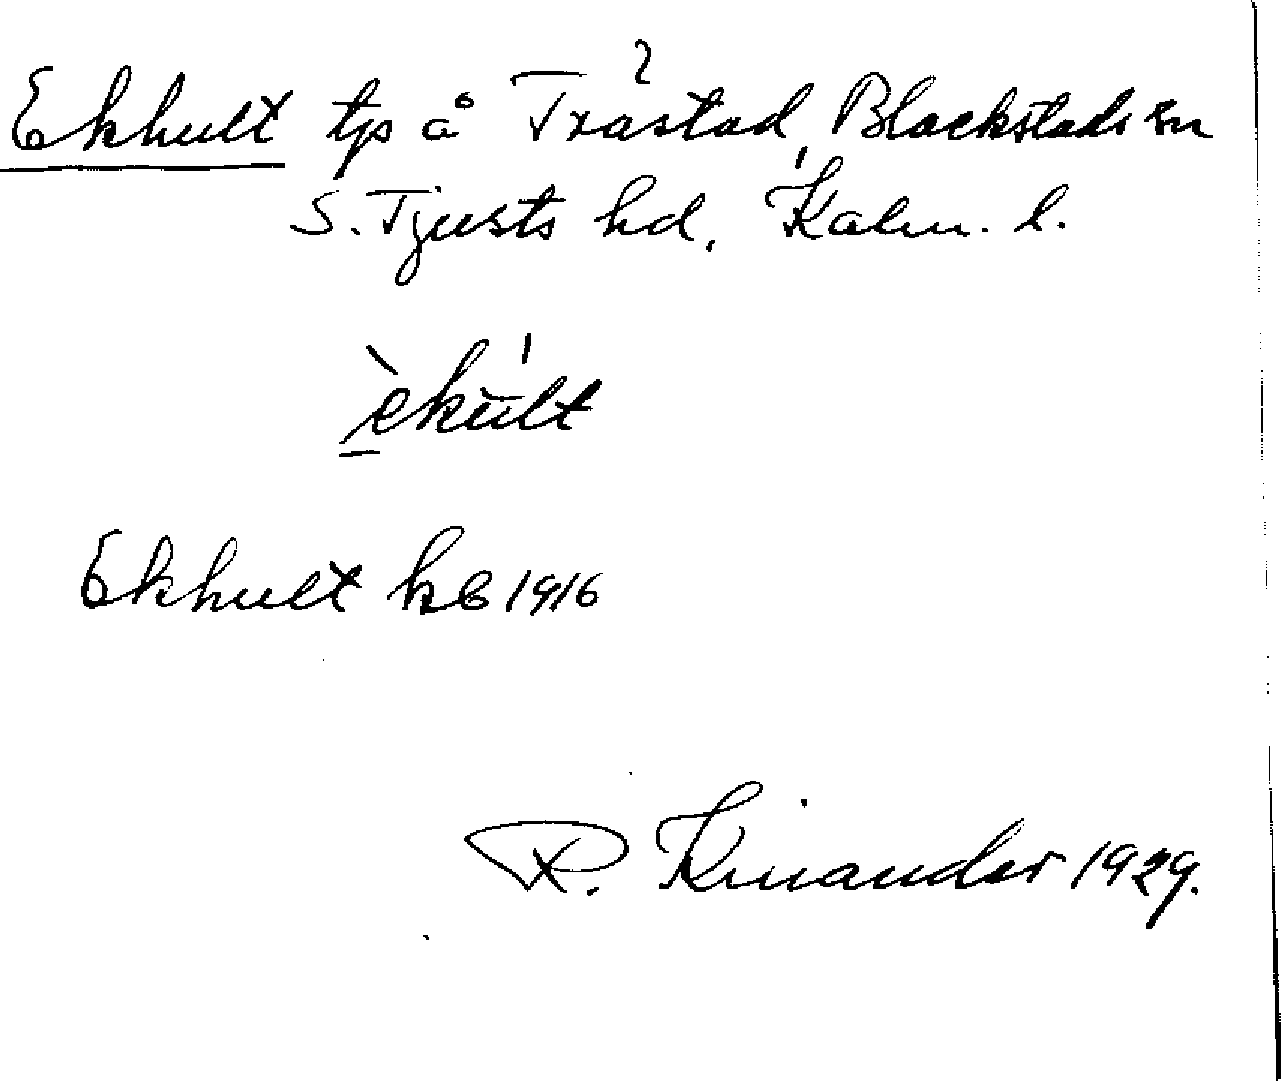 Ekhult tp å Trästad, Blackstads sn
S. Tjusts hd, Kalm. l.
èkúlt
Ekhult kb 1916
R. Kinander 1929.